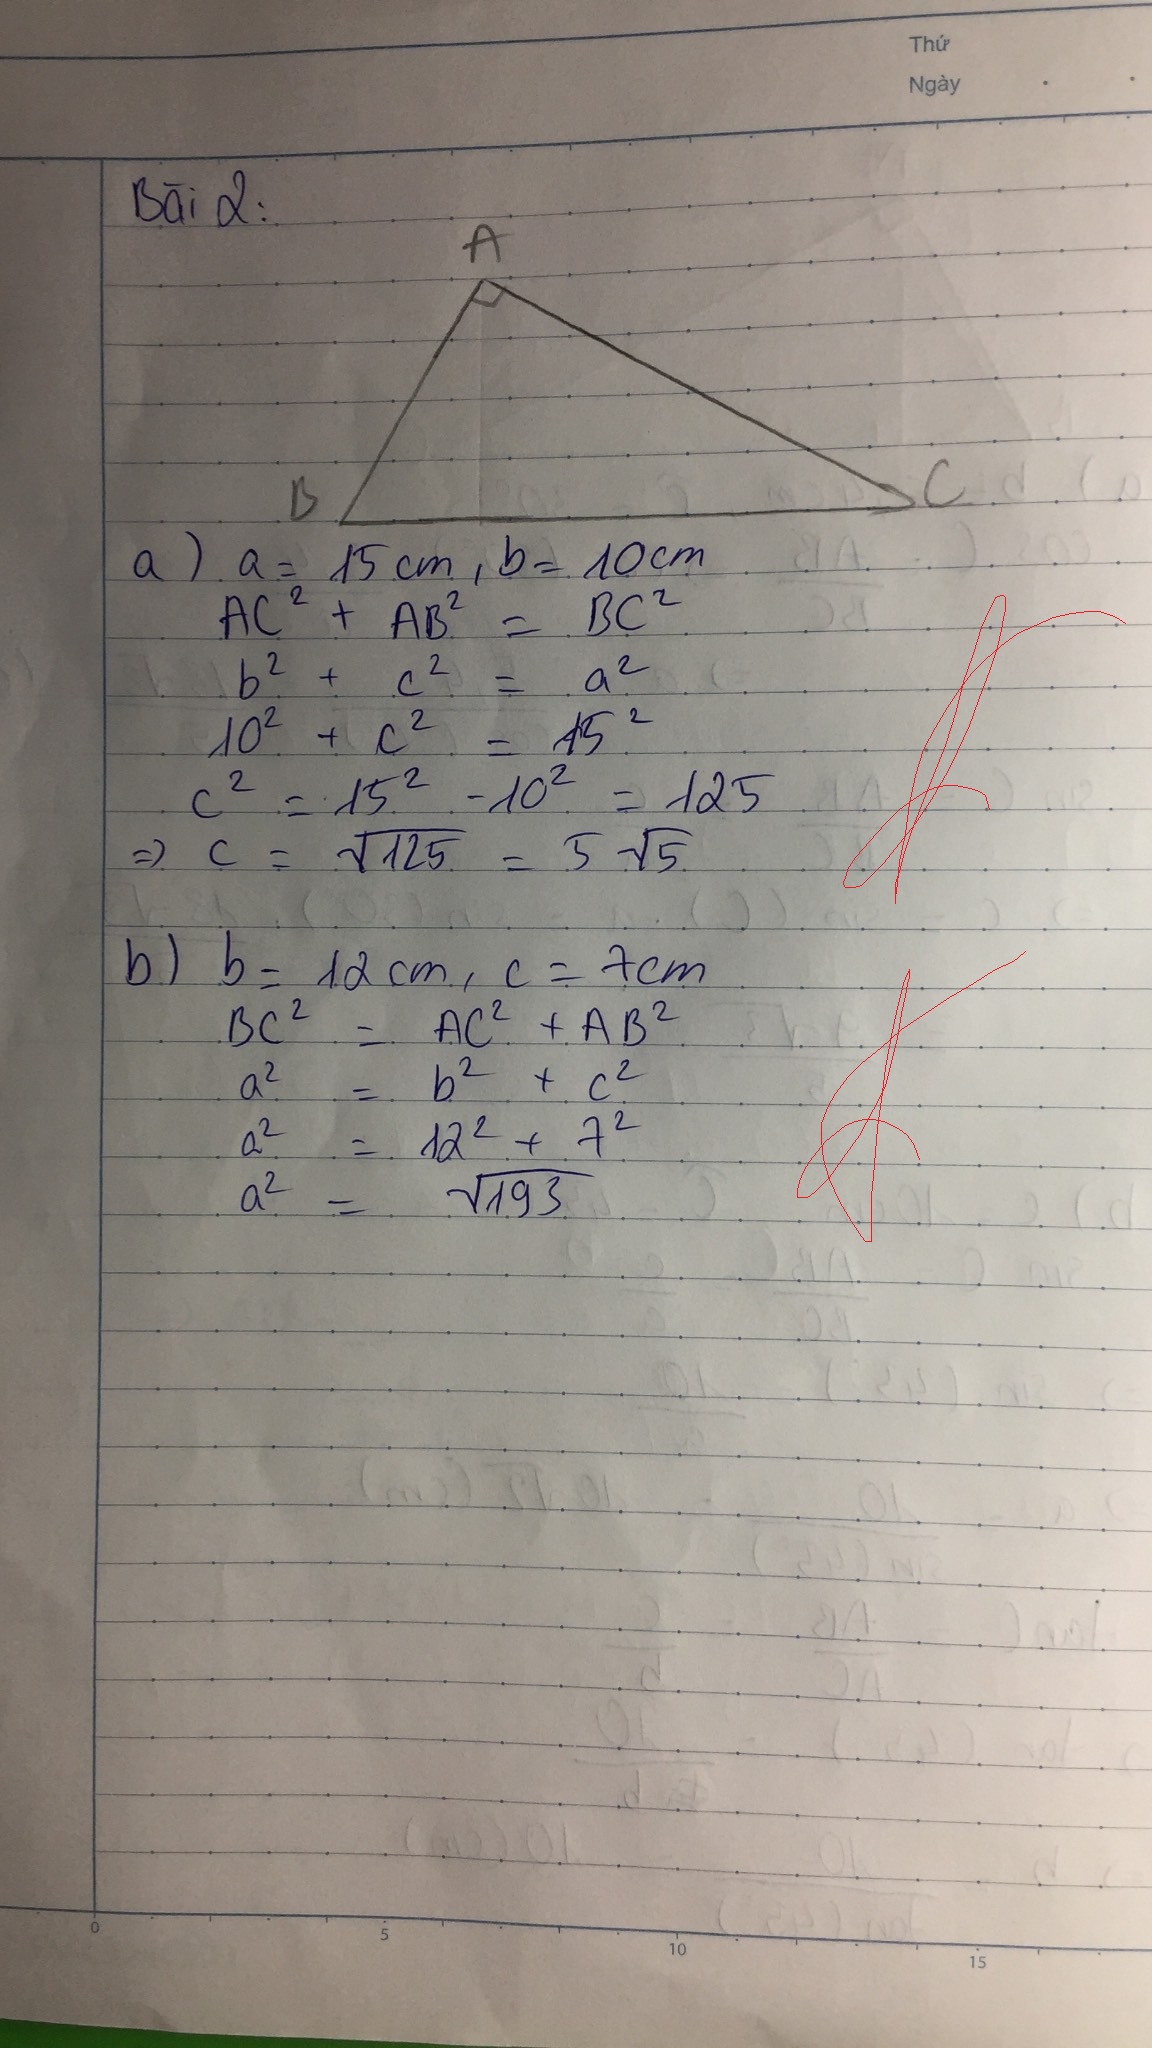 Thứ
Ngày
Bài 2:
A
B
C
a) a = 15 cm, b = 10 cm
AC² + AB² = BC²
b² + c² = a²
10² + c² = 15²
c² = 15² - 10² = 125
=> c = √125 = 5√5
b) b = 12 cm, c = 7 cm
BC² = AC² + AB²
a² = b² + c²
a² = 12² + 7²
a² = √193
0 5 10 15